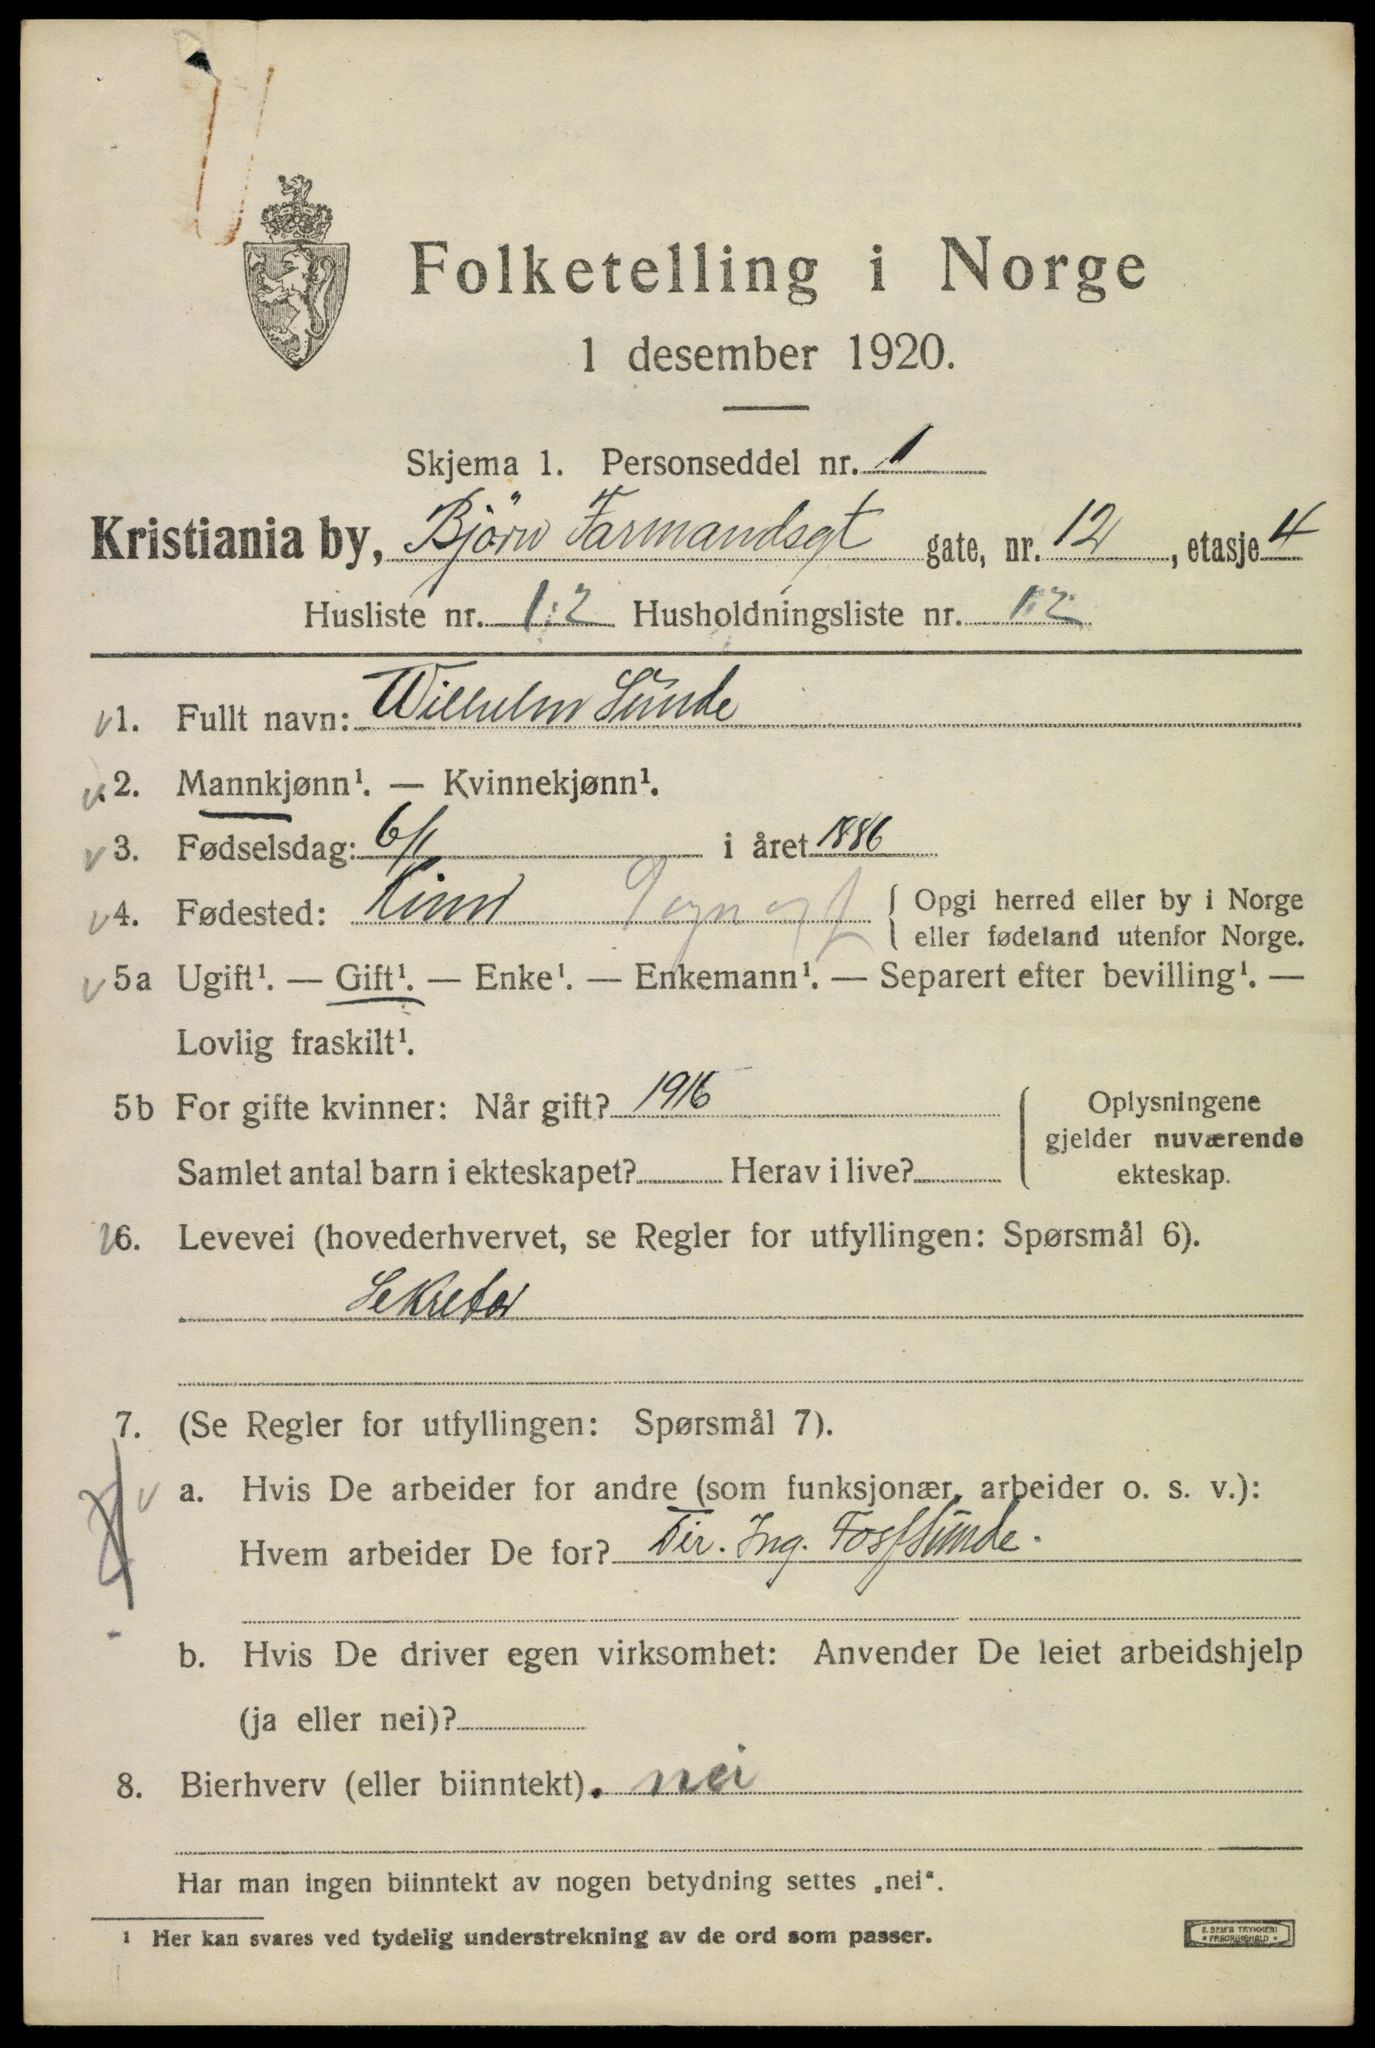 Folketelling i Norge
1 desember 1920.
Skjema 1. Personseddel nr. 1
Kristiania by, Bjørn Farmandsgt gate, nr. 12, etasje 4
Husliste nr. 1:2 Husholdningsliste nr. 12
1. Fullt navn: Wilhelm Sunde
2. Mannkjønn¹. — Kvinnekjønn¹.
3. Fødselsdag: 6/1 i året 1886
4. Fødested: Kinn Sogn og f { Opgi herred eller by i Norge
eller fødeland utenfor Norge.
5a Ugift¹. — Gift¹. — Enke¹. — Enkemann¹. — Separert efter bevilling¹. —
Lovlig fraskilt¹.
5b For gifte kvinner: Når gift? 1916
Samlet antal barn i ekteskapet? Herav i live?
Oplysningene
gjelder nuværende
ekteskap.
6. Levevei (hovederhvervet, se Regler for utfyllingen: Spørsmål 6).
Sekretær
7. (Se Regler for utfyllingen: Spørsmål 7).
a. Hvis De arbeider for andre (som funksjonær, arbeider o. s. v.):
Hvem arbeider De for? Dir. Ing. Sunde.
b. Hvis De driver egen virksomhet: Anvender De leiet arbeidshjelp
(ja eller nei)?
8. Bierhverv (eller biinntekt). nei
Har man ingen biinntekt av nogen betydning settes „nei“.
¹ Her kan svares ved tydelig understrekning av de ord som passer.
E. SEM'S TRYKKERI
FREDRIKSHALD